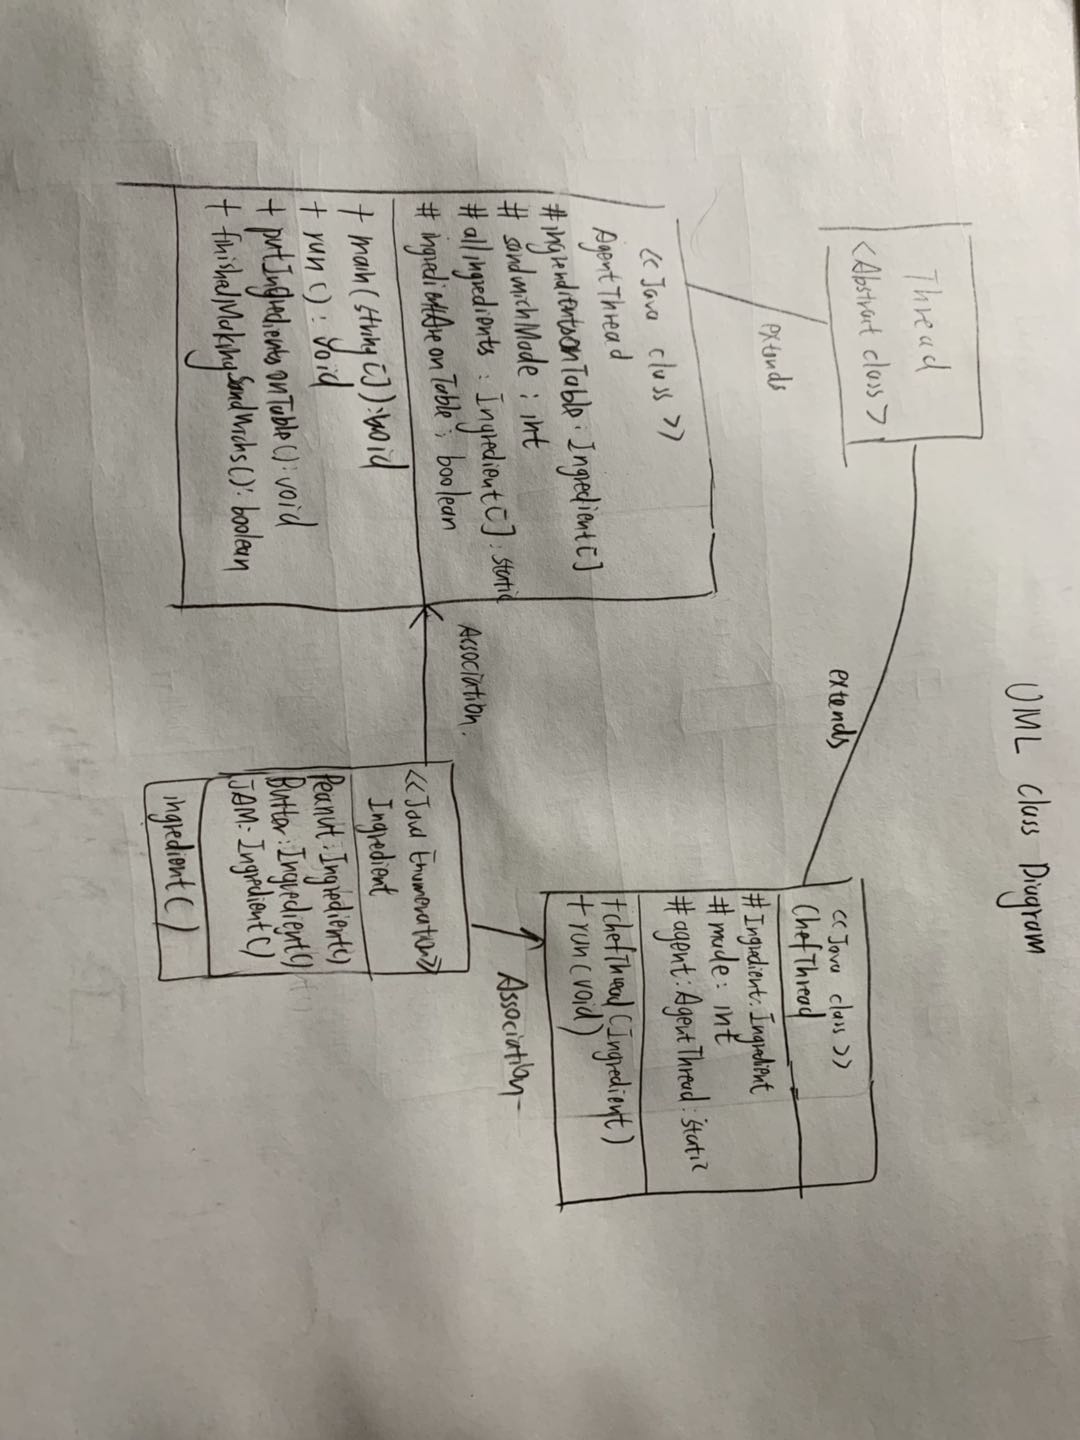 UML Class Diagram
Thread
<Abstract class>
extends
extends
<<Java class>>
ChefThread
#Ingredient: Ingredient
# made: int
# agent: AgentThread: static
+chefThread(Ingredient)
+ run(void)
<<Java class>>
AgentThread
#ingrendientsonTable: Ingredient[]
# sandwichMade: int
# allingredients: Ingredient[]: static
# ingredientAreonTable: boolean
+ main(string[]): void
+ run(): void
+ putIngredientsonTable(): void
+ finishedMakingSandwichs(): boolean
Association.
Association-
<<Java Enumeration>>
Ingredient
Peanut: Ingredient()
Butter: Ingredient()
JAM: Ingredient()
ingredient()